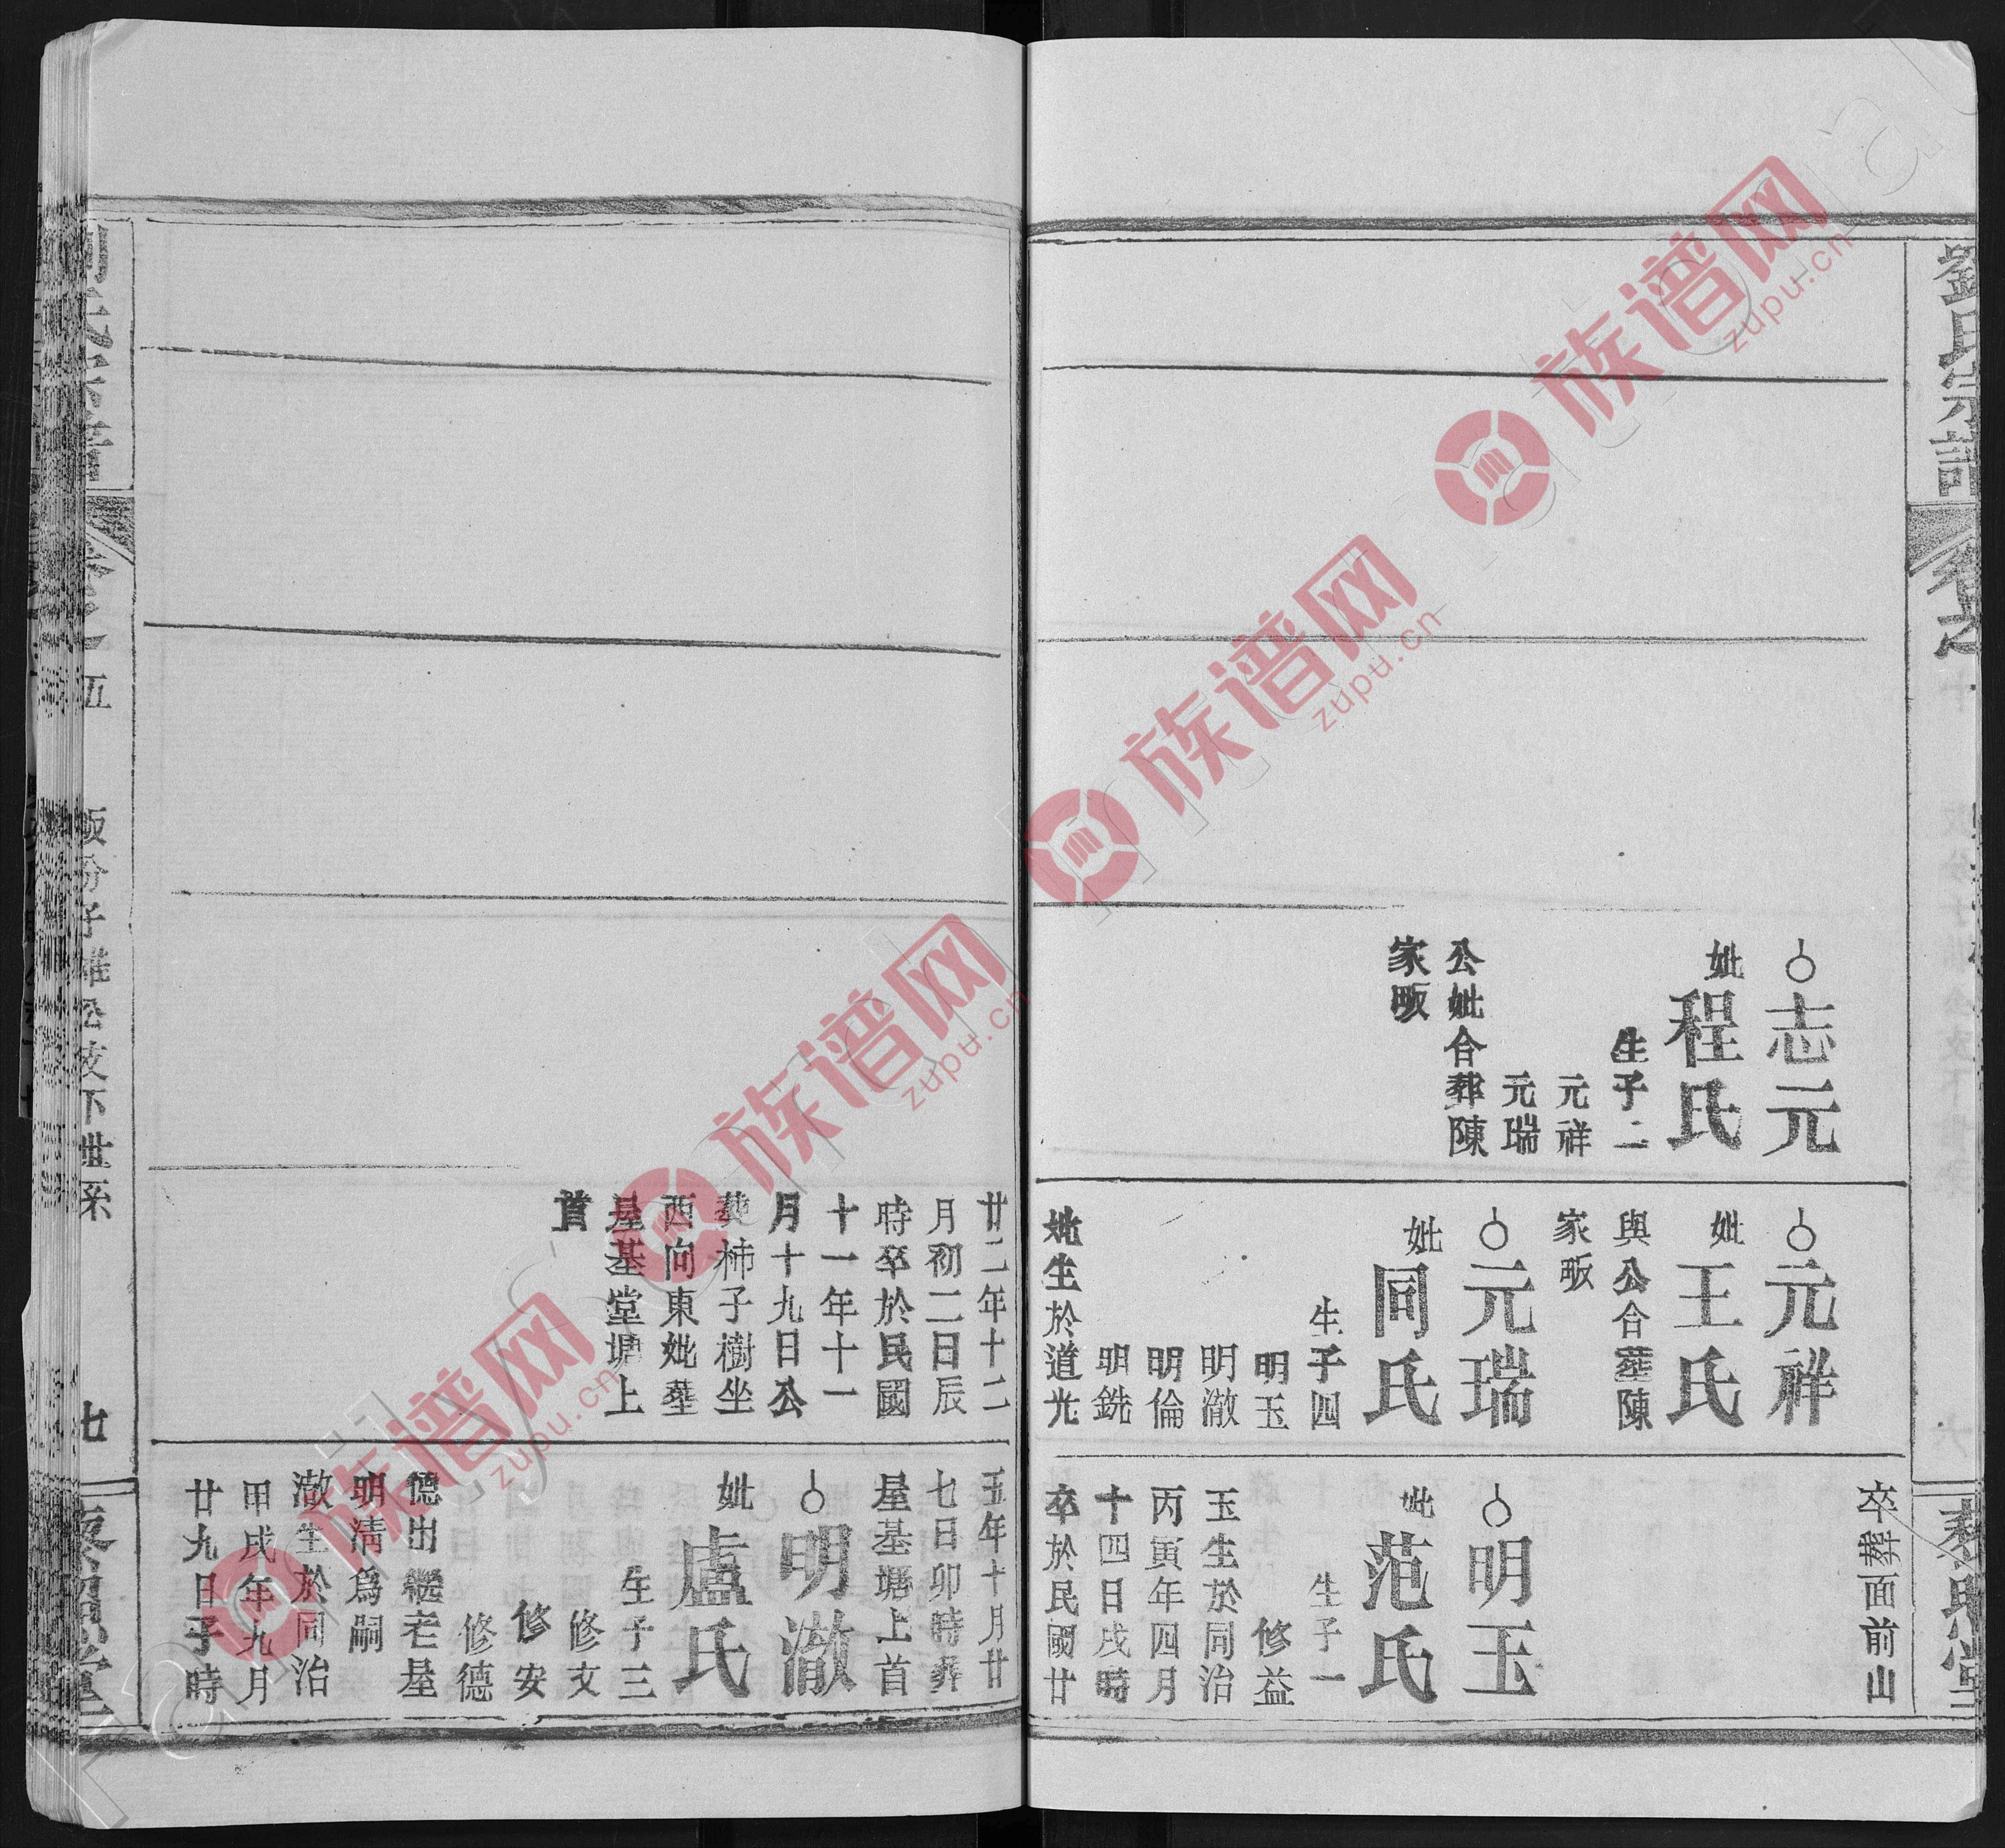 劉氏宗譜
卷之
志元
妣程氏
生子二
元祥
元瑞
公妣合葬陳
家畈
元祥
妣王氏
與公合塟陳
家畈
元瑞
妣同氏
生子四
明玉
明澈
明倫
明銑
妣生於道光
卒葬面前山
明玉
妣范氏
生子一
修益
玉生於同治
丙寅年四月
十四日戌時
卒於民國廿
廿二年十二
月初二日辰
時卒於民國
十一年十一
月十九日公
葬柿子樹坐
西向東妣塟
屋基堂塘上
首
五年十月廿
七日卯時葬
屋基塘上首
明澈
妣盧氏
生子三
修文
修安
修德
德出繼老屋
明清爲嗣
澈生於同治
甲戌年九月
廿九日子時
五
畈份子雄公支下世系
七
族谱网
zupu.cn
族谱网
zupu.cn
族谱网
zupu.cn
族谱网
zupu.cn